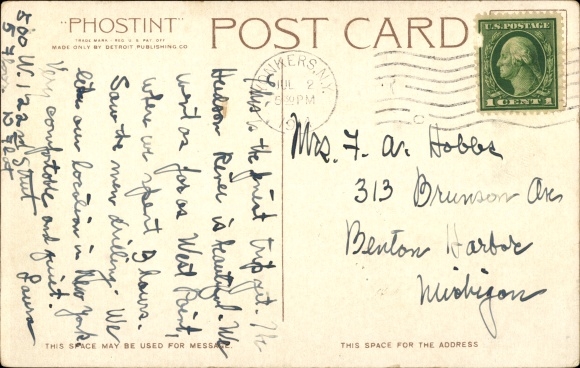 "PHOSTINT"
TRADE MARK - REG. U.S. PAT. OFF.
MADE ONLY BY DETROIT PUBLISHING CO.
POST CARD
YONKERS, N.Y.
JUL 2
PM
U.S. POSTAGE
1 CENT 1
This is the finest trip yet. The
Hudson River is beautiful. We
went as far as West Point,
where we spent 3 hours.
Saw the men drilling. We
like our location in New York
Very comfortable and quiet.
Laura
500 W. 122nd Street
Mrs. F. A. Hobbs
313 Brunson Ave
Benton Harbor
Michigan
THIS SPACE MAY BE USED FOR MESSAGE.
THIS SPACE FOR THE ADDRESS